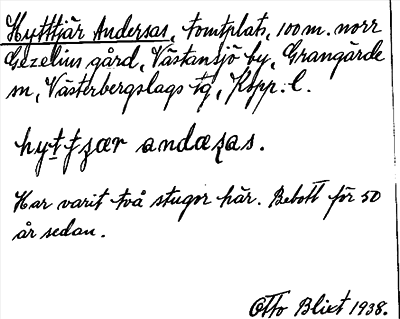 Hytttjär Andersas, tomtplats, 100 m. norr
Gezelius gård, Västansjö by, Grangärde
sn, Västerbergslags tg, Kopp. l.
hyttjær andæsas.
Har varit två stugor här. Bebott för 50
år sedan.
Otto Blixt 1938.